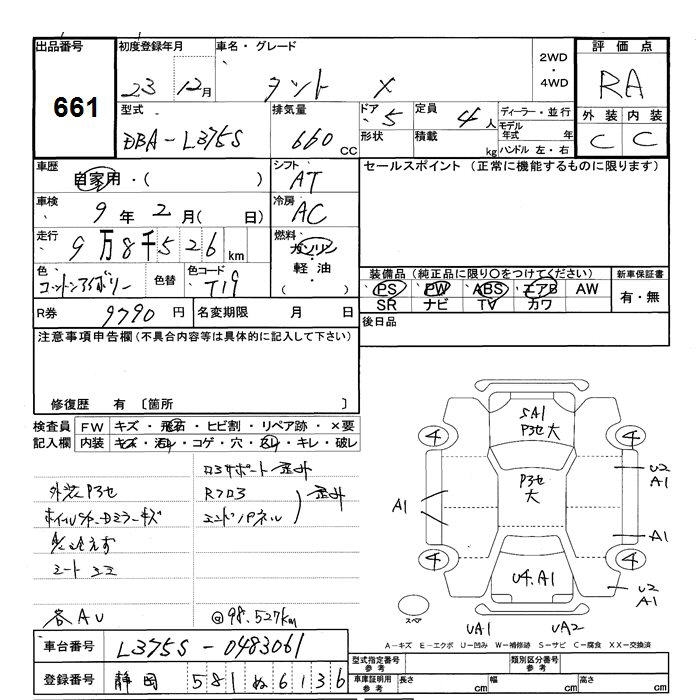 出品番号 初度登録年月 車名・グレード 2WD・4WD 評価点
661 23 12月 タント X RA
型式 排気量 ドア 5 定員 4人 ディーラー・並行 外装 内装
DBA-L375S 660 CC 形状 積載 kg モデル年式 年 C C
ハンドル 左・右
車歴 自家用・( ) シフト AT セールスポイント (正常に機能するものに限ります)
車検 9年 2月( 日) 冷房 AC
走行 9万8千526km 燃料 ガソリン・軽油 ( )
色 コットンアイボリー 色替 色コード T19
装備品 (純正品に限り○をつけてください) 新車保証書
PS PW ABS エアB AW 有・無
SR ナビ TV カワ
R券 9790円 名変期限 月 日 後日品
注意事項申告欄 (不具合内容等は具体的に記入して下さい)
修復歴 有 〔箇所 〕
検査員 FW キズ・飛石・ヒビ割・リペア跡・×要
記入欄 内装 キズ・汚れ・コゲ・穴・スレ・キレ・破レ
コアサポート 歪外
外装Pヨセ Rフロア 歪外
ホイルカバー・Dミラーキズ エンドパネル
シート
各AU @98.527km
SA1
Pヨセ大
Pヨセ大
U4.A1
4 4
4 4
A1
U2
A1
A1
U2
A1
UA1 UA2
スペア
A-キズ E-エクボ U-凹み W-補修跡 S-サビ C-腐食 XX-交換済
車台番号 L375S-0483061
登録番号 静岡 581 ぬ 6136
型式指定番号 参考 類別区分番号 参考
車庫証明用 参考 長さ cm 幅 cm 高さ cm